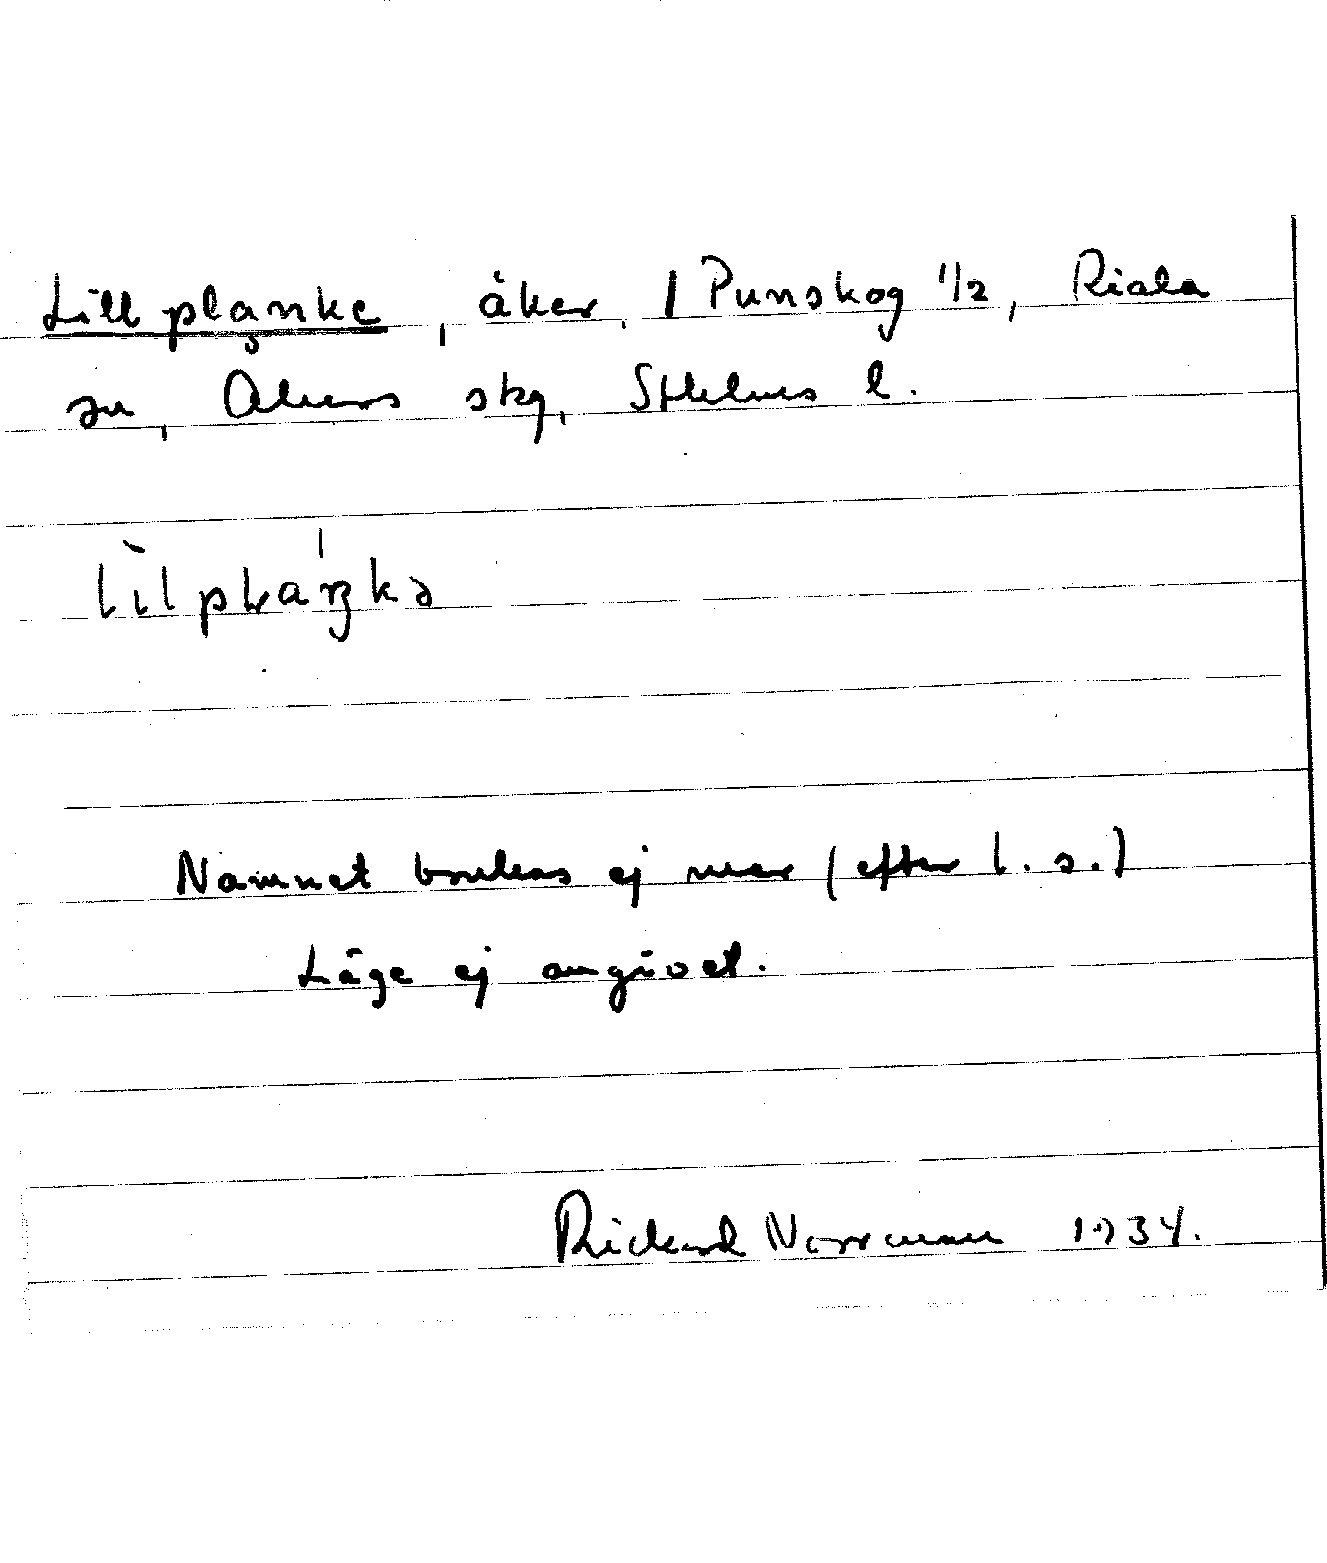 Lillplanke, åker, / Punskog 1/2, Riala
sn, Åkers skg, Sthlms l.
Namnet brukas ej mer (efter l. s.)
Läge ej angivet.
Rickard Norrman 1934.